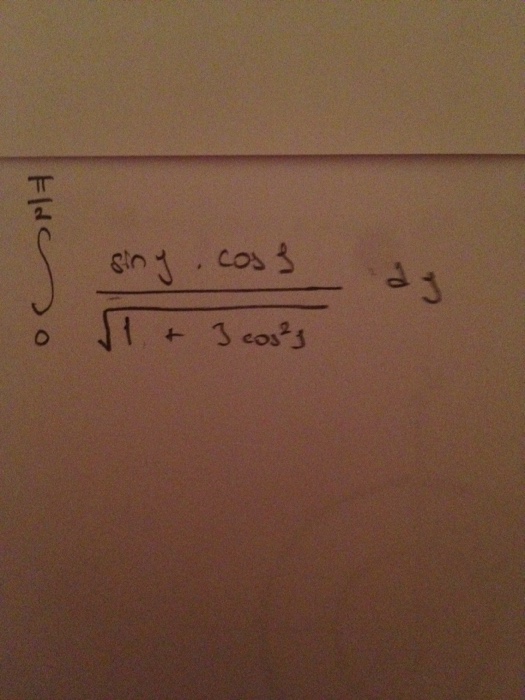 ∫₀^{π/2} (sin y . cos y) / √(1 + 3 cos² y) dy